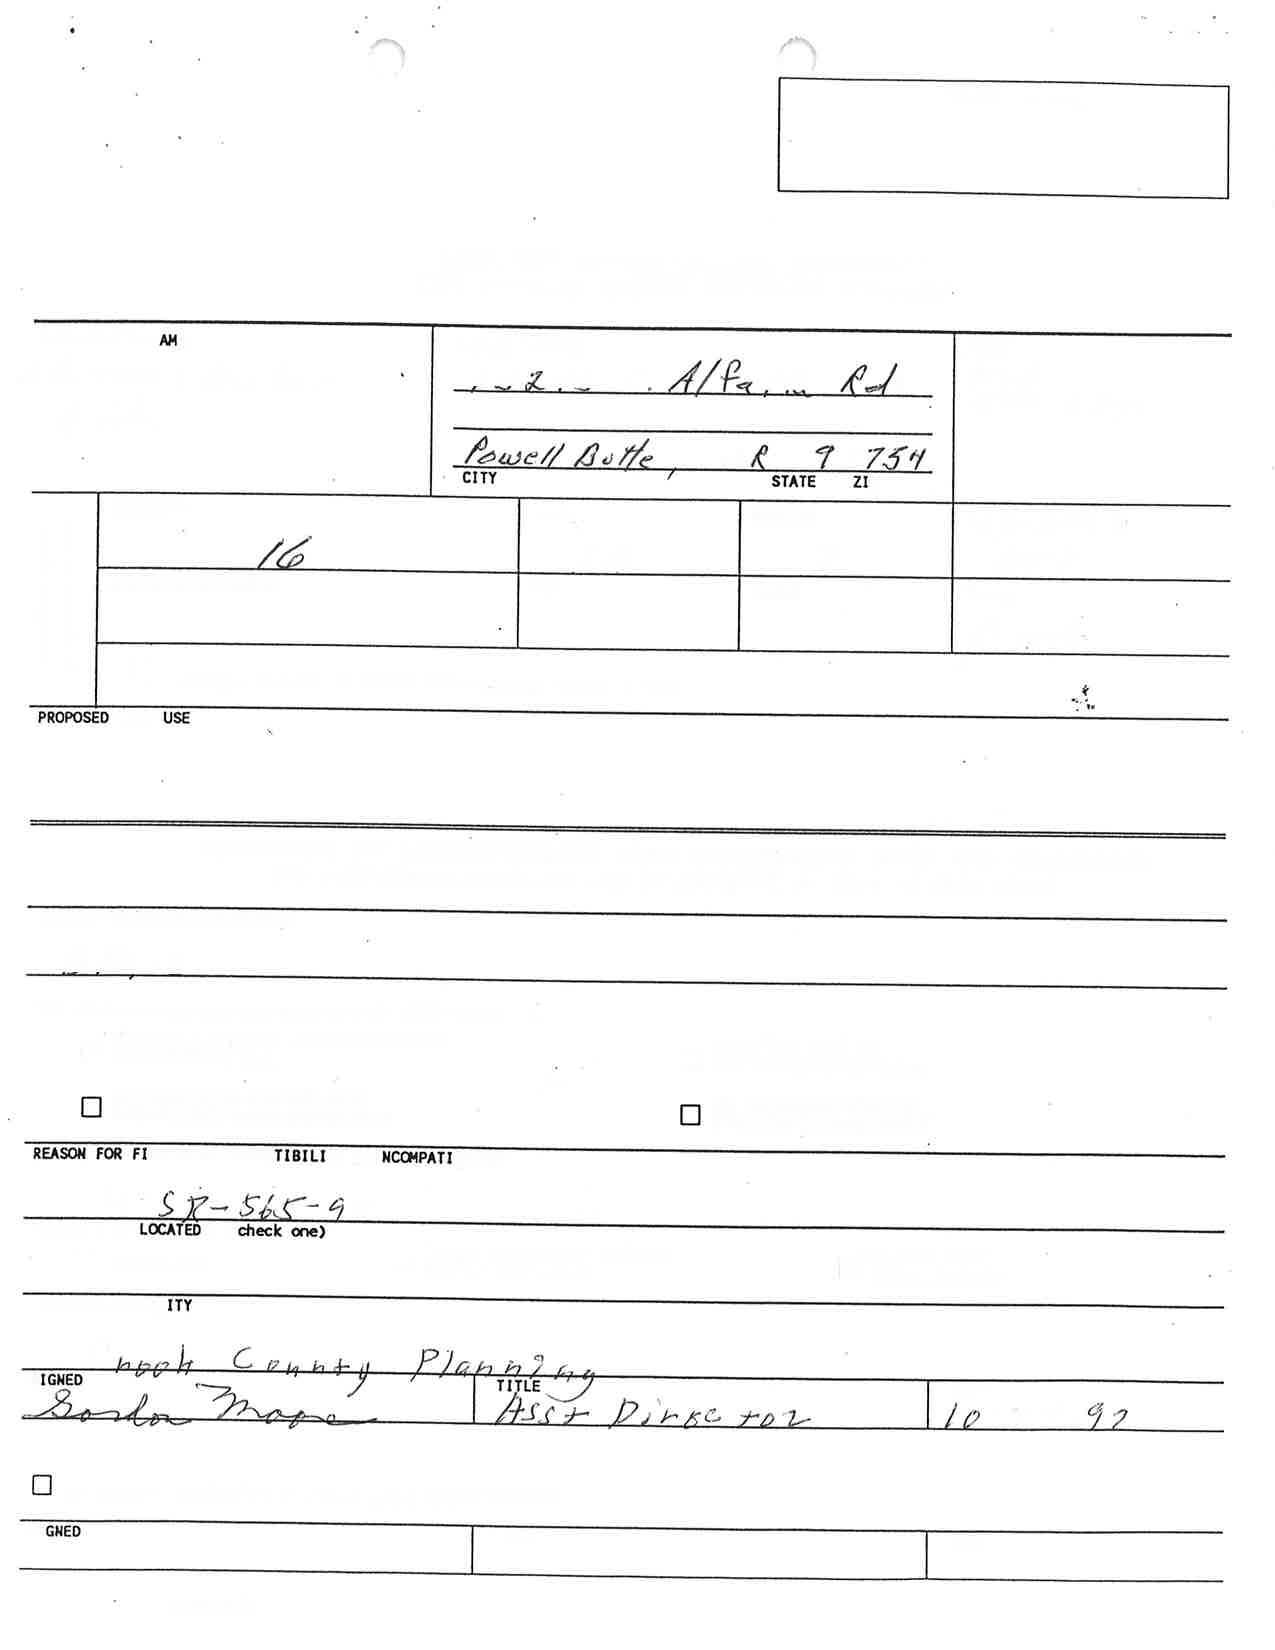 AM
Rd
Powell Butte, R 9 754
CITY STATE ZI
16
PROPOSED USE
REASON FOR FI TIBILI NCOMPATI
SR-565-9
LOCATED check one)
ITY
County Planning
IGNED TITLE
Gordon Moore Asst Director 10 92
GNED